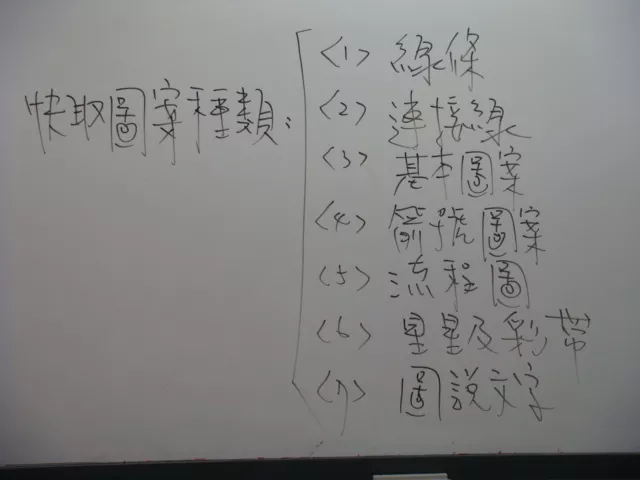 快取圖案種類:
<1> 線條
<2> 連接線
<3> 基本圖案
<4> 箭號圖案
<5> 流程圖
<6> 星星及彩帶
<7> 圖說文字